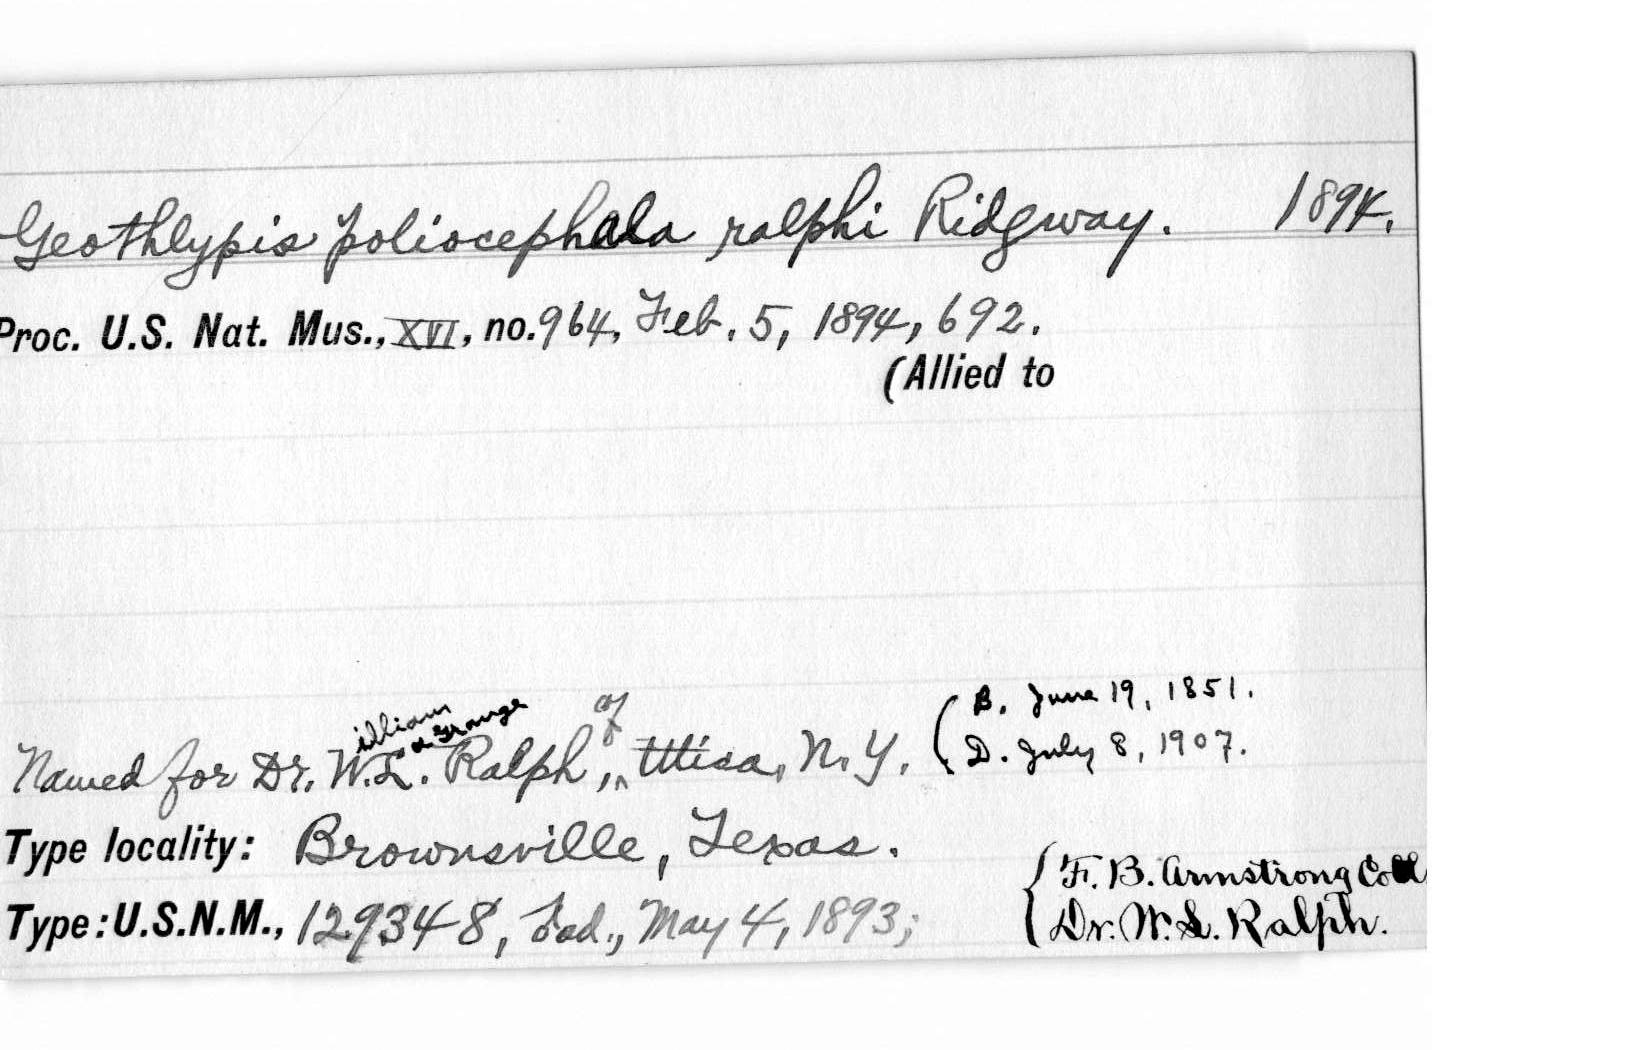 Geothlypis poliocephala ralphi Ridgway. 1894.
Proc. U.S. Nat. Mus., XVI, no. 964, Feb. 5, 1894, 692.
(Allied to
Named for Dr. William La Grange Ralph, of Utica, N. Y. (B. June 19, 1851.
D. July 8, 1907.
Type locality: Brownsville, Texas.
F. B. Armstrong Coll
Type: U.S.N.M., 129348, ad., May 4, 1893; Dr. W. L. Ralph.